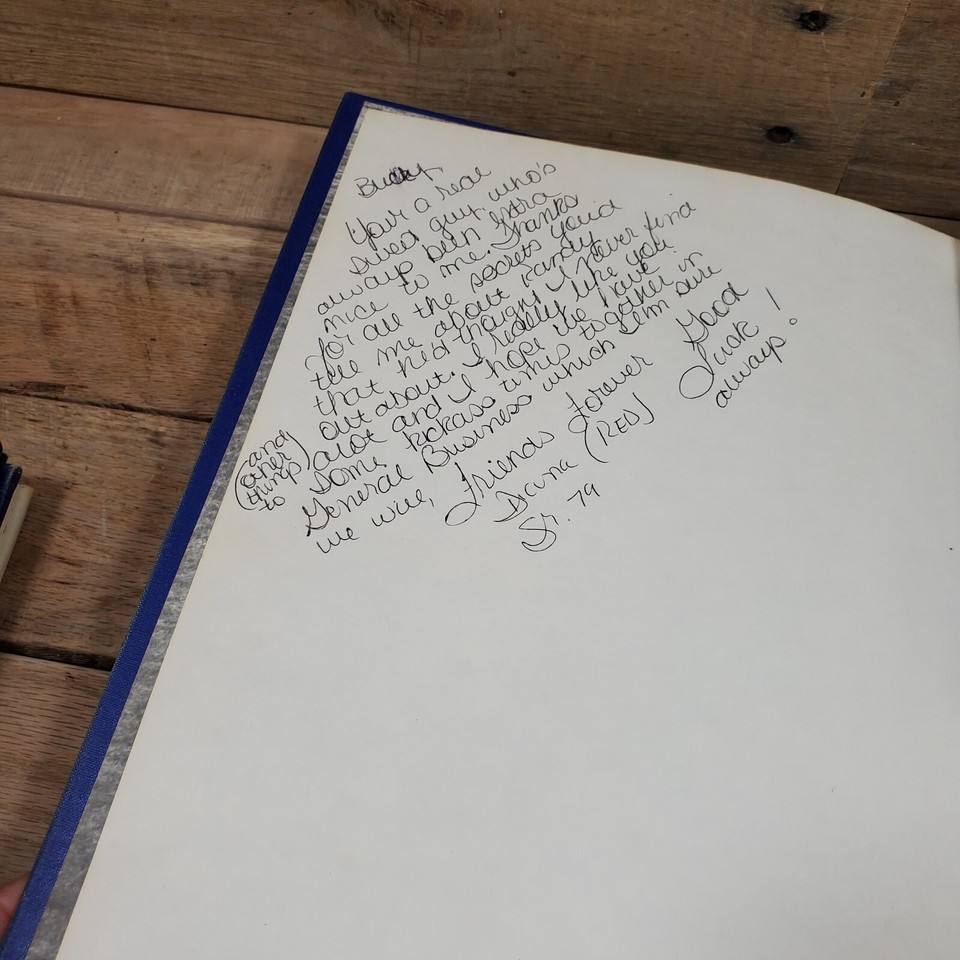 Your a real
sweet guy, who's
always been extra
nice to me. Thanks
for all the secrets you'd
tell me about Randy
that he'd thought I'd never find
out about. I really like you
alot and I hope we have
(and other things) to
some kickass times together in
General Business which I'm sure
we will, friends forever
Good
Luck
always!
(RED)
Sr. 79